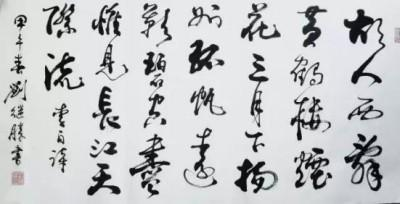 故人西辭
黄鶴樓煙
花三月下揚
州孤帆遠
影碧空盡
惟見長江天
際流
李白詩
甲午春劉继勝書